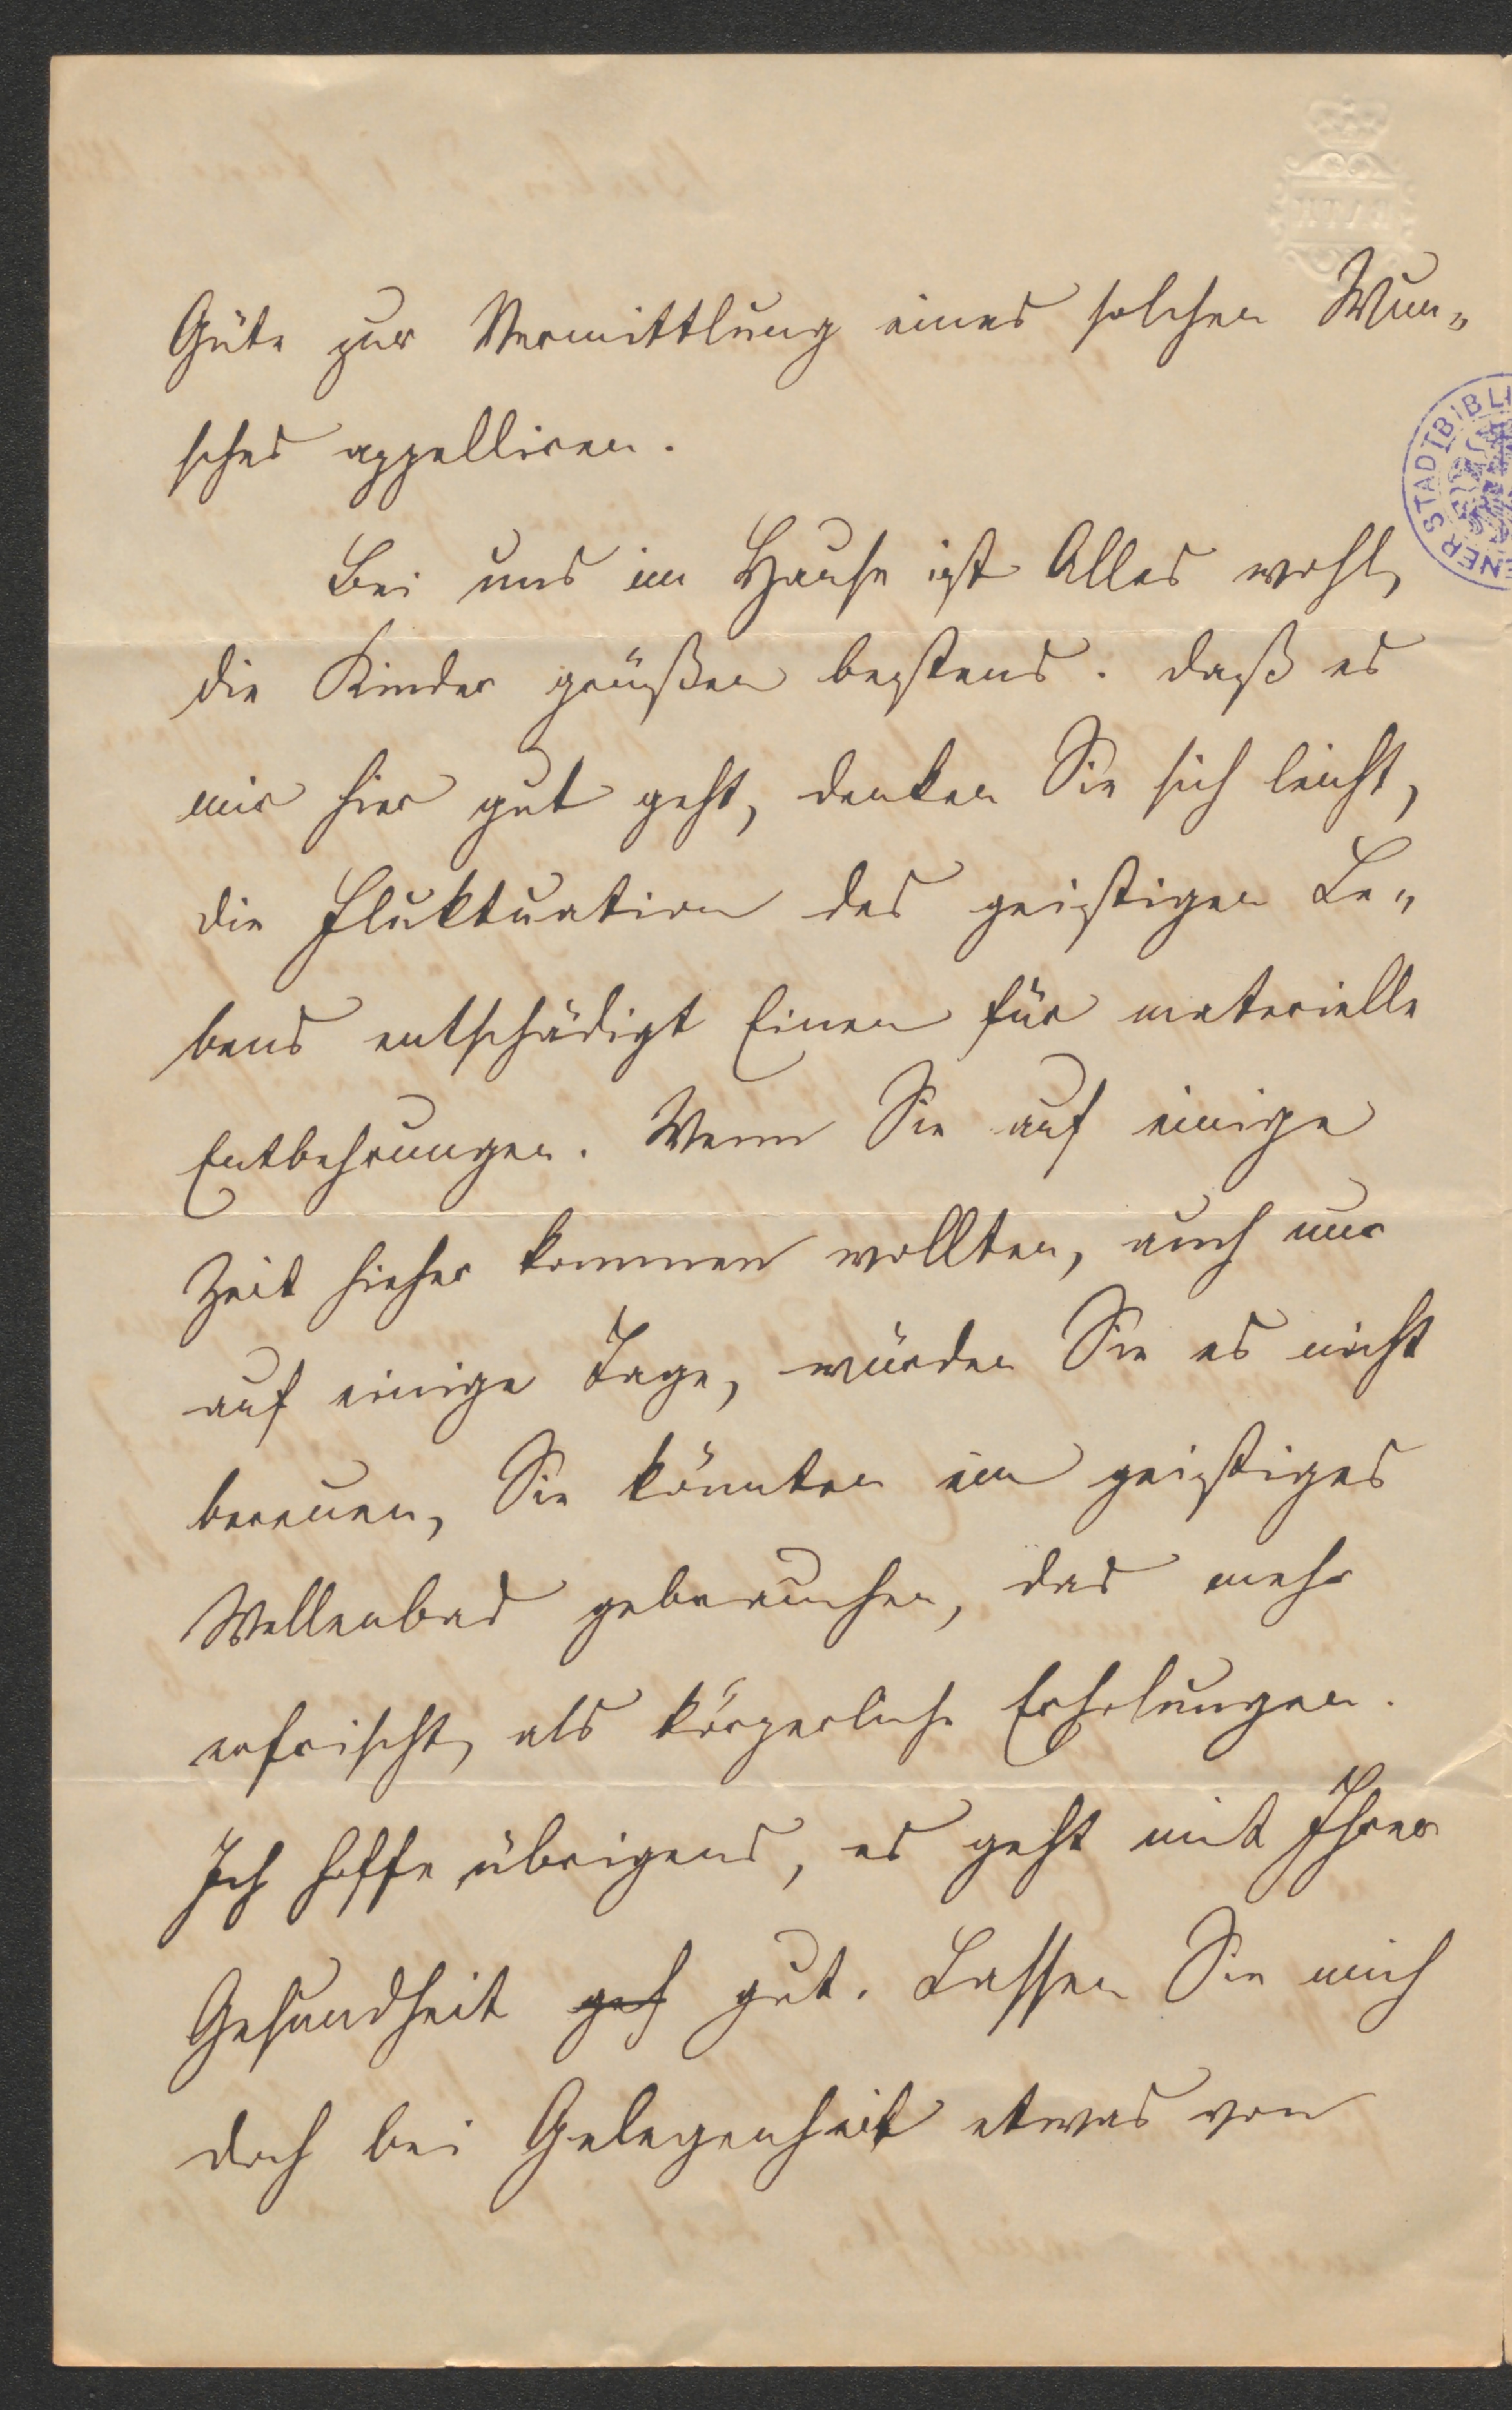 Güte zur Vermittlung eines solchen Wun„
sches appelliren.
Bei uns im Hause ist Alles wohl,
die Kinder grüßen bestens. daß es
mir hier gut geht, denken Sie sich leicht,
die Fluktuation des geistigen Le„
bens entschädigt Einen für materielle
Entbehrungen. Wenn Sie auf einige
Zeit hieher kommen wollten, auch nur
auf einige Tage, würden Sie es nicht
bereuen, Sie könnten ein geistiges
Wellenbad gebrauchen, das mehr
erfrischt, als körperliche Erholungen.
Ich hoffe übrigens, es geht mit Ihrer
Gesundheit geh gut. Lassen Sie mich
doch bei Gelegenheit etwas von
BATH
ENER STADTBIBLI